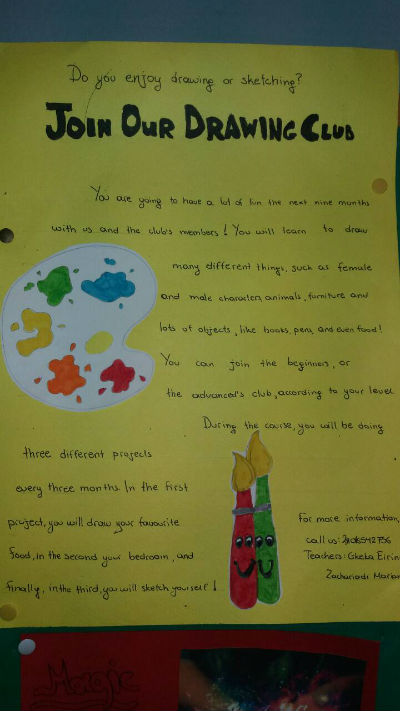 Do you enjoy drawing or sketching?
JOIN OUR DRAWING CLUB
You are going to have a lot of fun the next nine months
with us and the club's members! You will learn to draw
many different things, such as female
and male characters, animals, furniture and
lots of objects, like books, pens, and even food!
You can join the beginners, or
the advanced's club, according to your level.
During the course, you will be doing
three different projects
every three months. In the first
project, you will draw your favourite
food, in the second your bedroom, and
finally, in the third, you will sketch yourself!
For more information,
call us:
Teachers: Gkeka Eirin
Zachariadi Marian
Magic